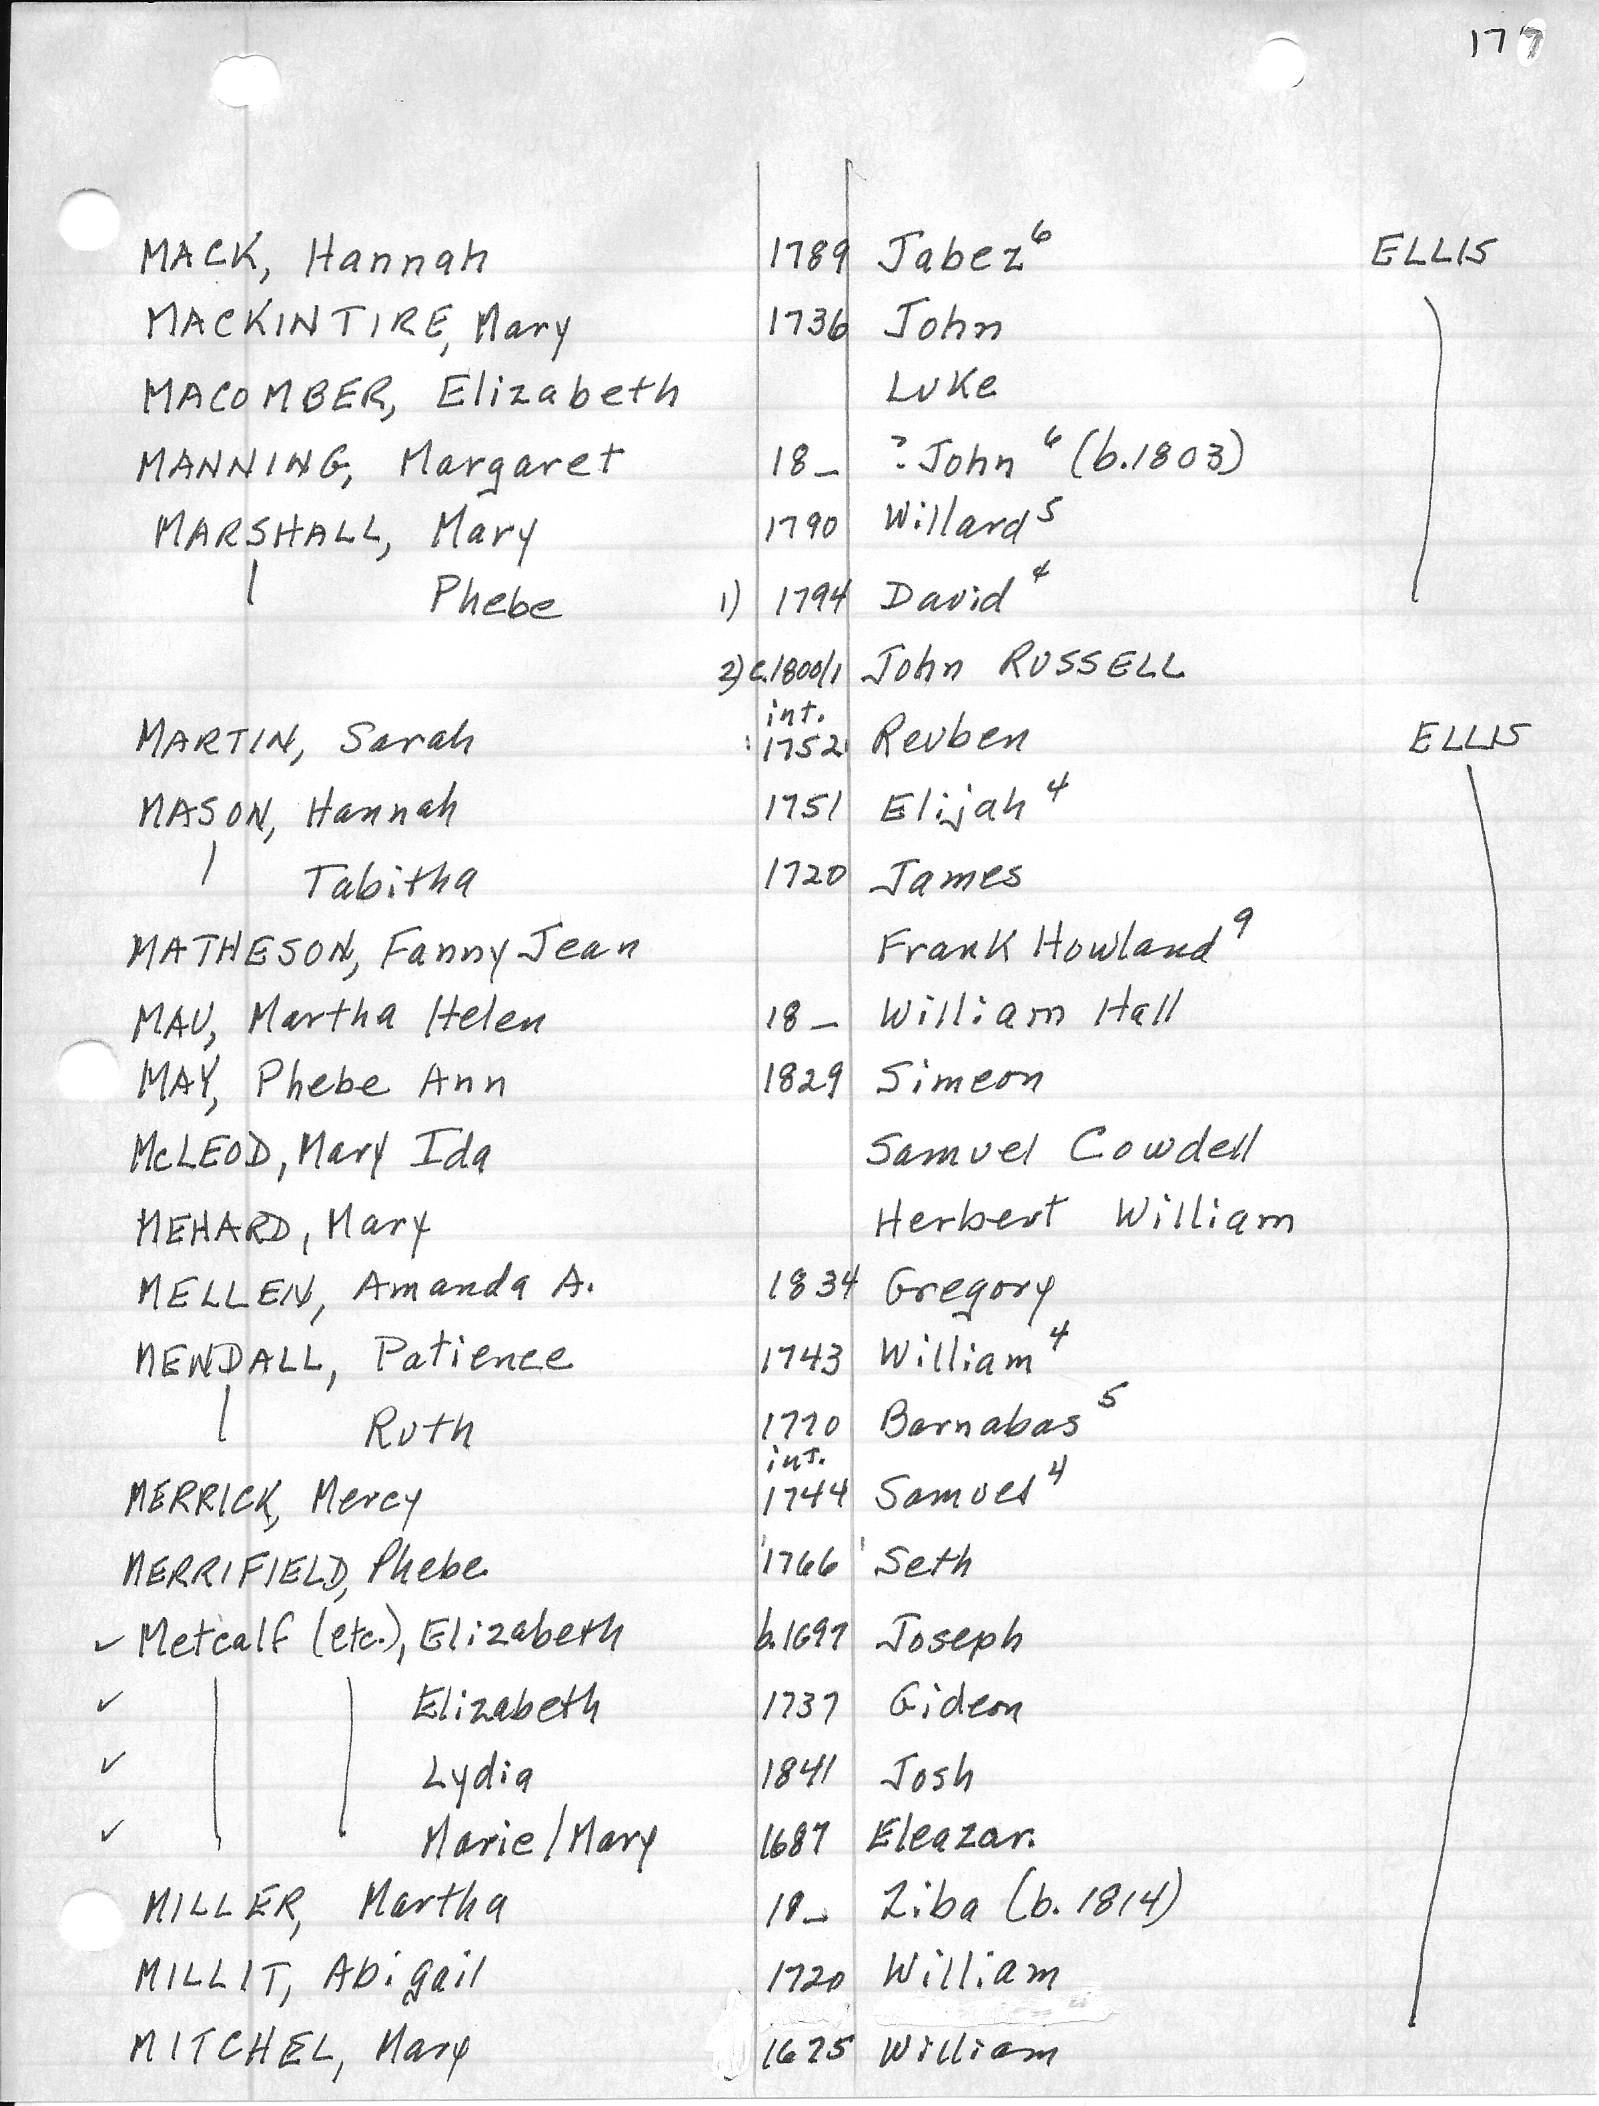 177
MACK, Hannah 1789 Jabez⁶ ELLIS
MACKINTIRE, Mary 1736 John
MACOMBER, Elizabeth Luke
MANNING, Margaret 18_ ?John⁶ (b.1803)
MARSHALL, Mary 1790 Willard⁵
Phebe 1) 1794 David⁴
2) c.1800/1 John RUSSELL
int.
MARTIN, Sarah 1752 Reuben ELLIS
MASON, Hannah 1751 Elijah⁴
Tabitha 1720 James
MATHESON, Fanny Jean Frank Howland⁹
MAU, Martha Helen 18_ William Hall
MAY, Phebe Ann 1829 Simeon
McLEOD, Mary Ida Samuel Cowdell
MEHARD, Mary Herbert William
MELLEN, Amanda A. 1834 Gregory
MENDALL, Patience 1743 William⁴
Ruth 1770 Barnabas⁵
int.
MERRICK, Mercy 1744 Samuel⁴
MERRIFIELD, Phebe 1766 Seth
✓ Metcalf (etc.), Elizabeth b.1697 Joseph
✓ Elizabeth 1737 Gideon
✓ Lydia 1841 Josh
✓ Marie/Mary 1687 Eleazar.
MILLER, Martha 18_ Ziba (b. 1814)
MILLIT, Abigail 1720 William
MITCHEL, Mary 1675 William